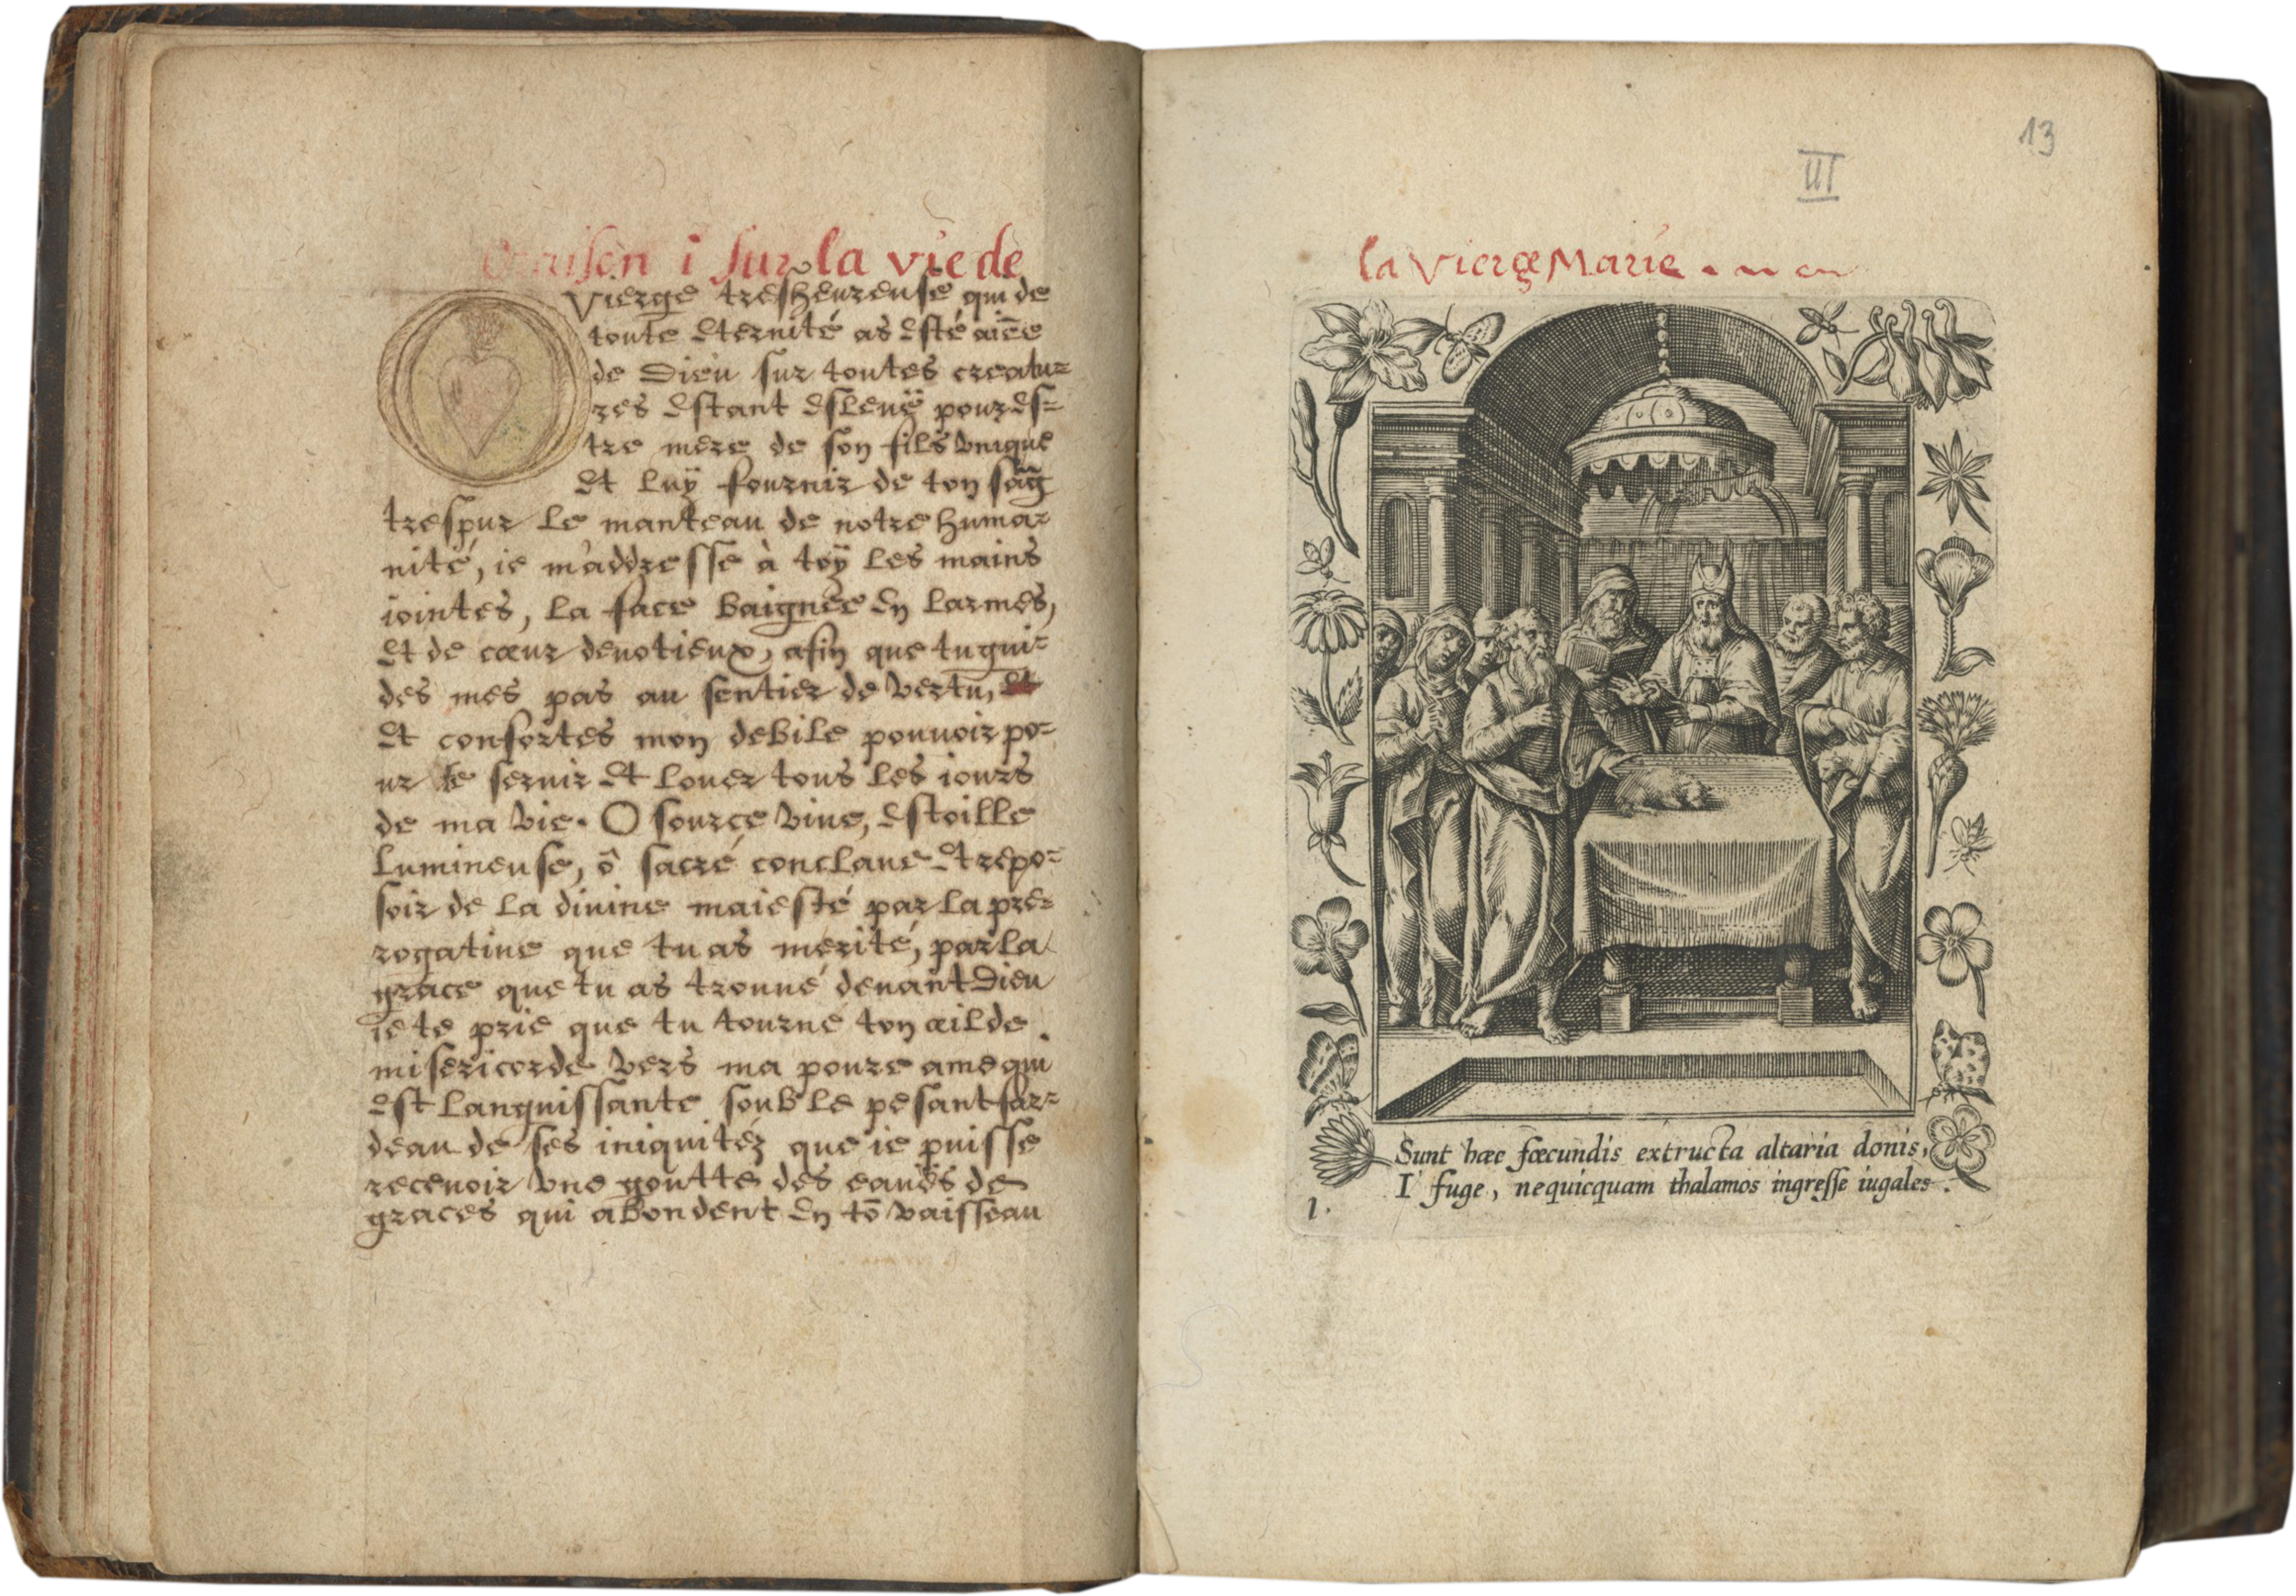 Oraison i sur la vie de
Vierge tresheureuse qui de
toute eternité as esté aiēe
de Dieu sur toutes creatu=
res estant esleuë pour es=
tre mere de son fils vnique
et luÿ fournir de ton sãg
trespur le manteau de notre huma=
nité, ie m'addresse à toÿ les mains
iointes, la face baignée en larmes,
et de cœur deuotieux, afin que tu gui=
des mes pas au sentier de vertu, et
et confortes mon debile pouuoir po=
ur te seruir et louer tous les iours
de ma vie. O source viue, estoille
lumineuse, ô sacré conclaue et repo=
soir de la diuine maiesté par la pre=
rogatiue que tu as merité, par la
grace que tu as trouué deuant Dieu
ie te prie que tu tourne ton œil de
misericorde vers ma poure ame qui
est languissante soub le pesant far=
deau de ses iniquitéz que ie puisse
receuoir vne goutte des eaues de
graces qui abondent en tō vaisseau
13
III
la Vierge Marie .
Sunt hæc fœcundis extructa altaria donis,
I fuge, nequicquam thalamos ingresse iugales.
1.